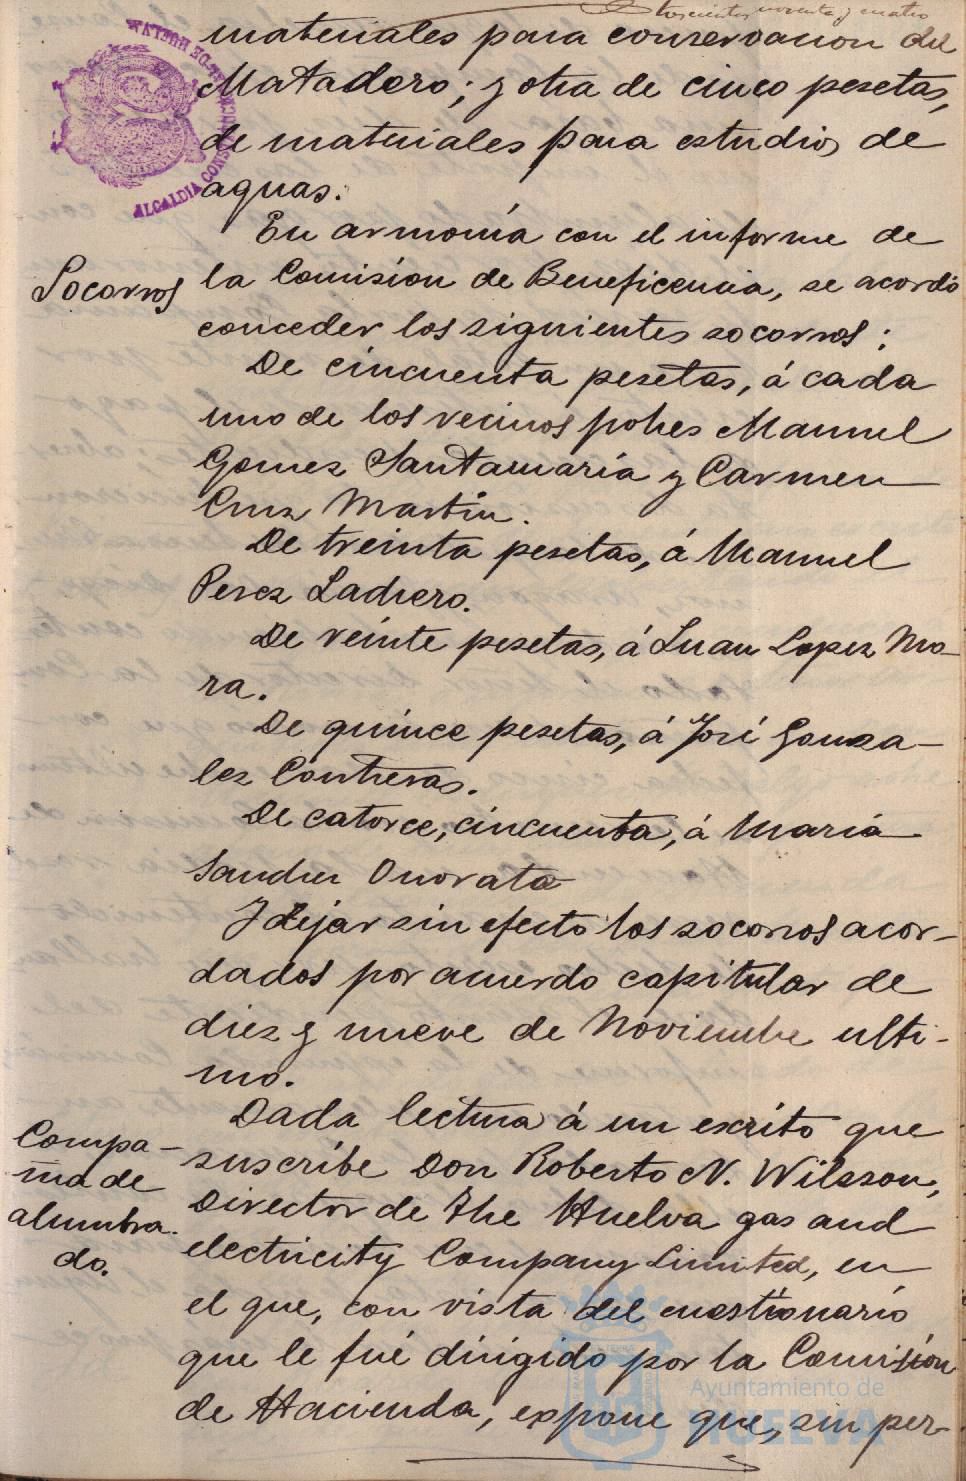 trescientos noventa y cuatro
materiales para conservacion del
Matadero; y otra de cinco pesetas,
de materiales para estudios de
aguas.
ALCALDIA CONSTITUCIONAL DE HUELVA
En armonía con el informe de
Socorros
la Comision de Beneficencia, se acordó
conceder los siguientes socorros:
De cincuenta pesetas, á cada
uno de los vecinos pobres Manuel
Gomez Santamaria y Carmen
Cruz Martin.
De treinta pesetas, á Manuel
Perez Ladrero.
De veinte pesetas, á Juan Lopez Mo-
ra.
De quince pesetas, á José Gonza-
lez Contreras.
De catorce, cincuenta, á Maria
Sandra Onorata
Y dejar sin efecto los socorros acor-
dados por acuerdo capitular de
diez y nueve de Noviembre ulti-
mo.
Compa-
ñia de
alumbra-
do.
Dada lectura á un escrito que
suscribe Don Roberto N. Wilsson,
Director de The Huelva gas and
electricity Company Limited, en
el que, con vista del cuestionario
que le fué dirigido por la Comisión
de Hacienda, expone que, sin per-
Ayuntamiento de
HUELVA